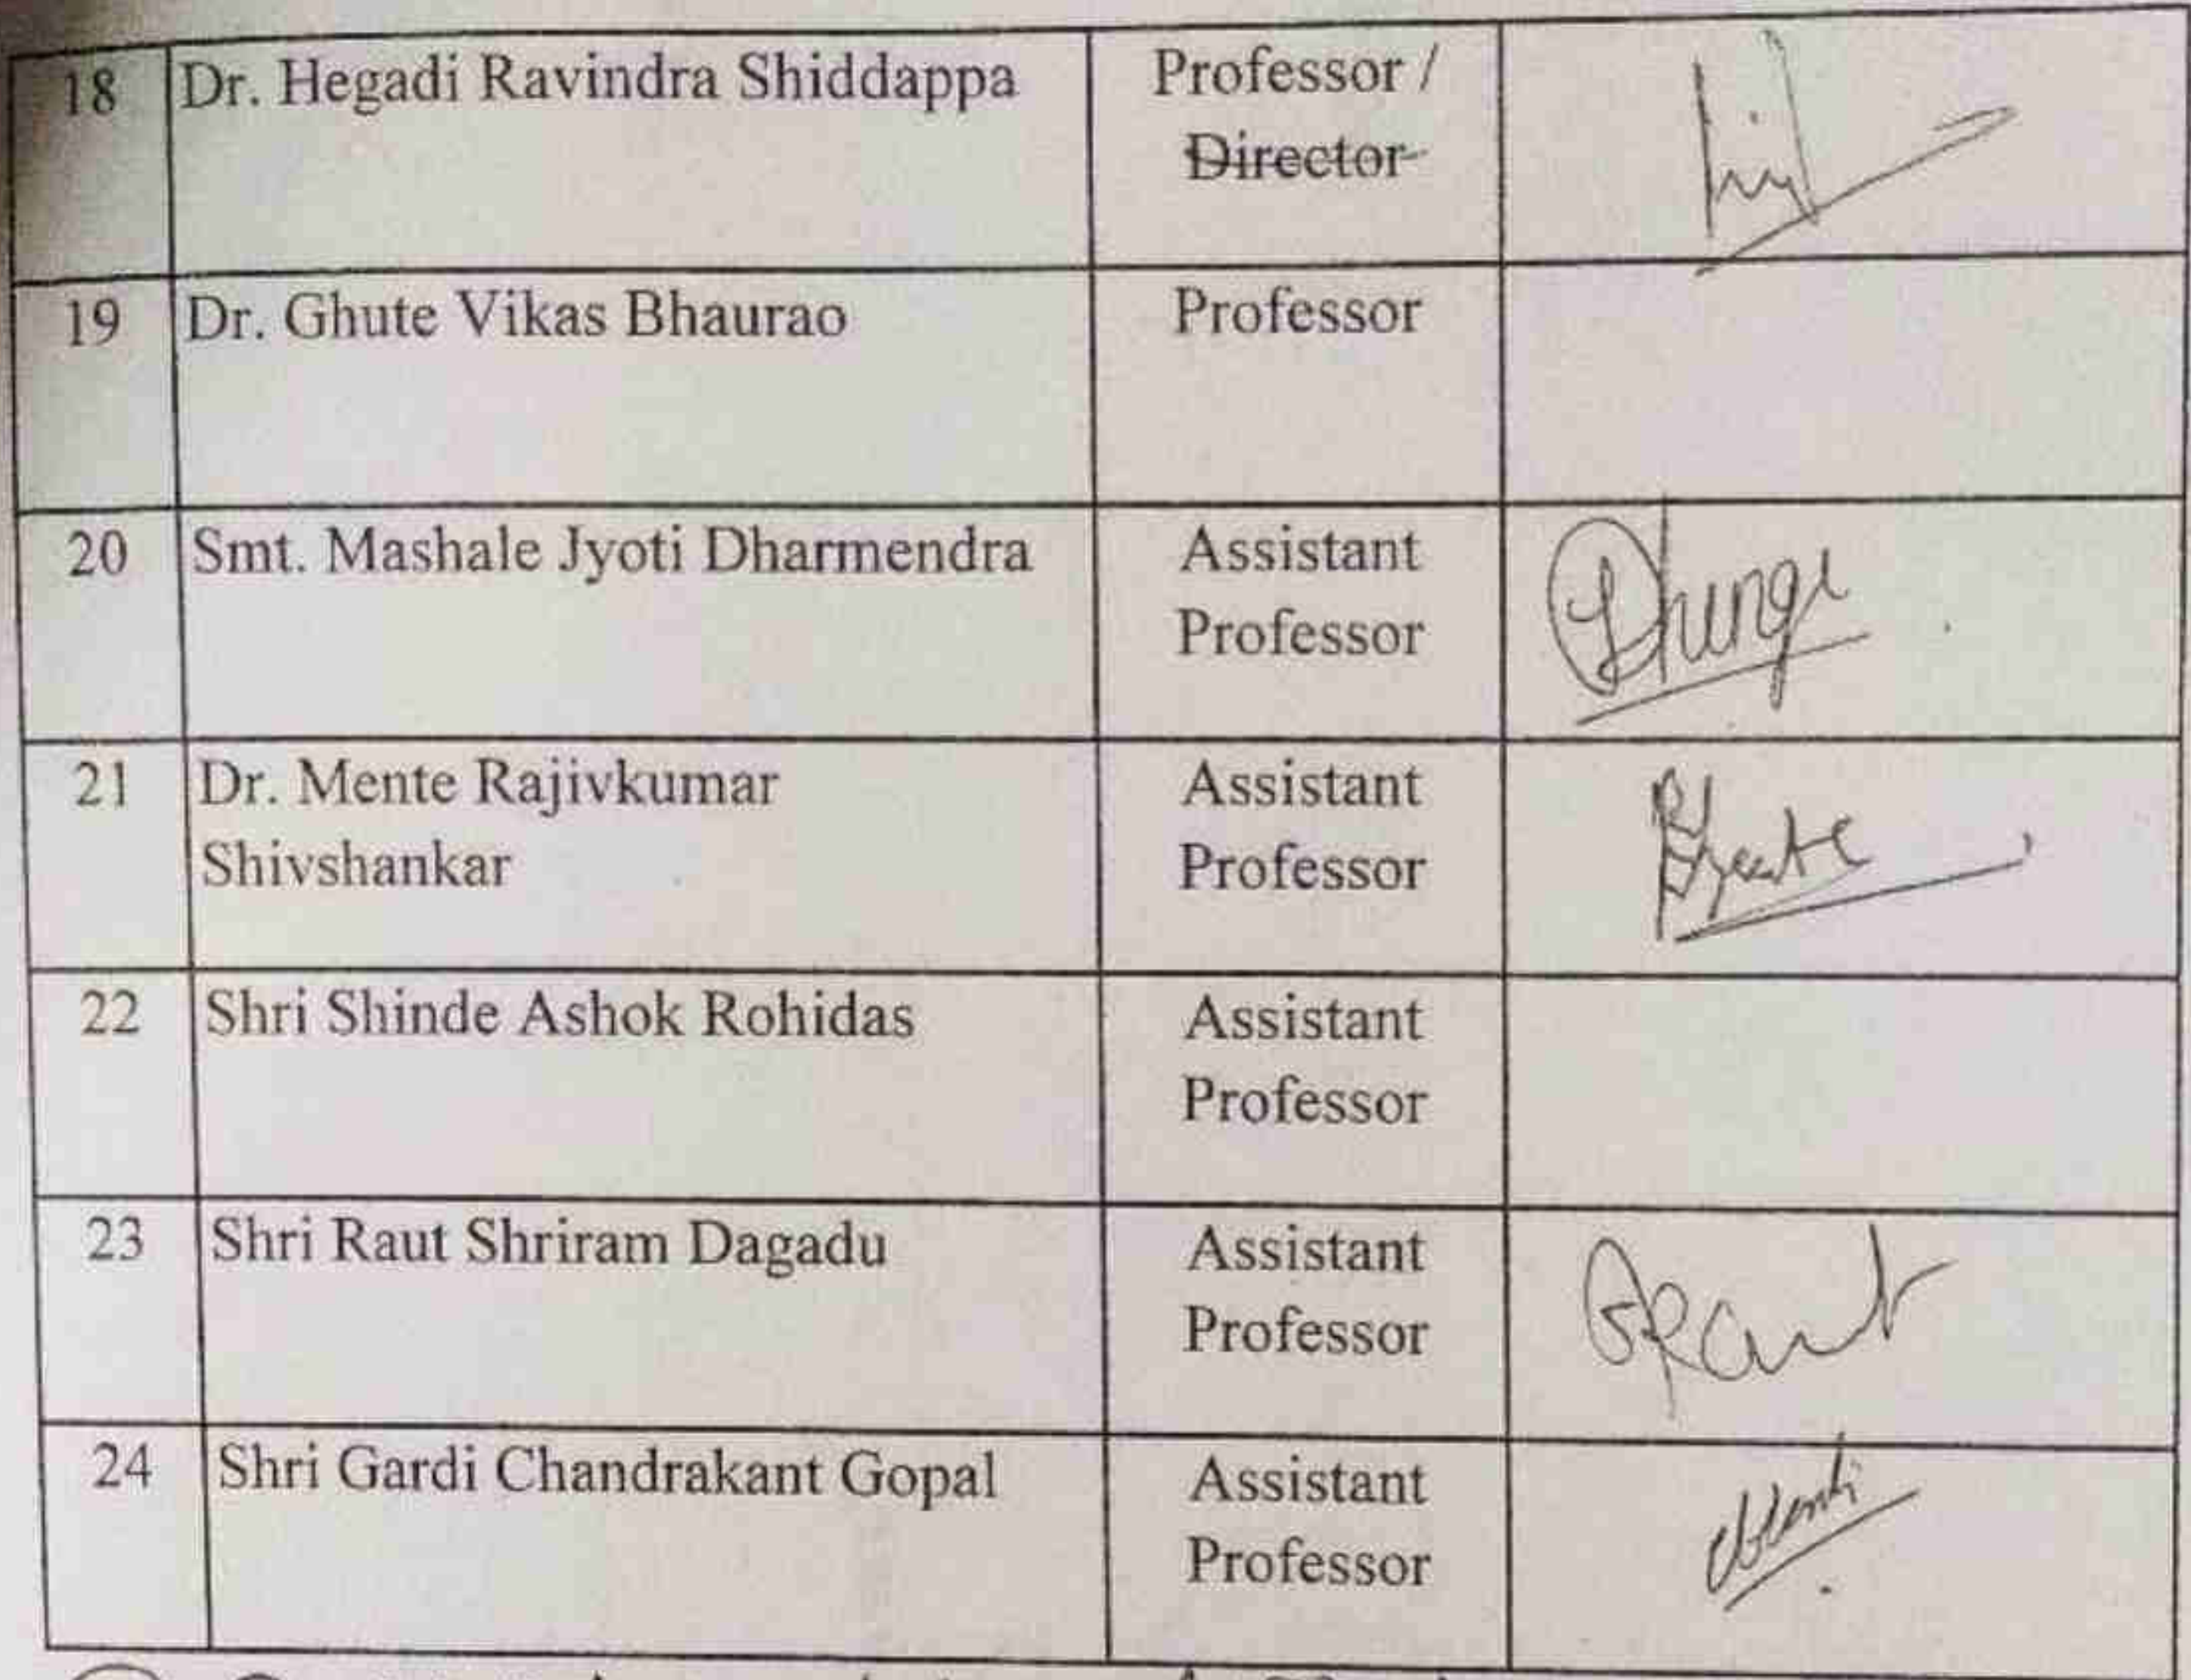 18 Dr. Hegadi Ravindra Shiddappa Professor /
Director
19 Dr. Ghute Vikas Bhaurao Professor
20 Smt. Mashale Jyoti Dharmendra Assistant
Professor
21 Dr. Mente Rajivkumar Assistant
Shivshankar Professor
22 Shri Shinde Ashok Rohidas Assistant
Professor
23 Shri Raut Shriram Dagadu Assistant
Professor
24 Shri Gardi Chandrakant Gopal Assistant
Professor